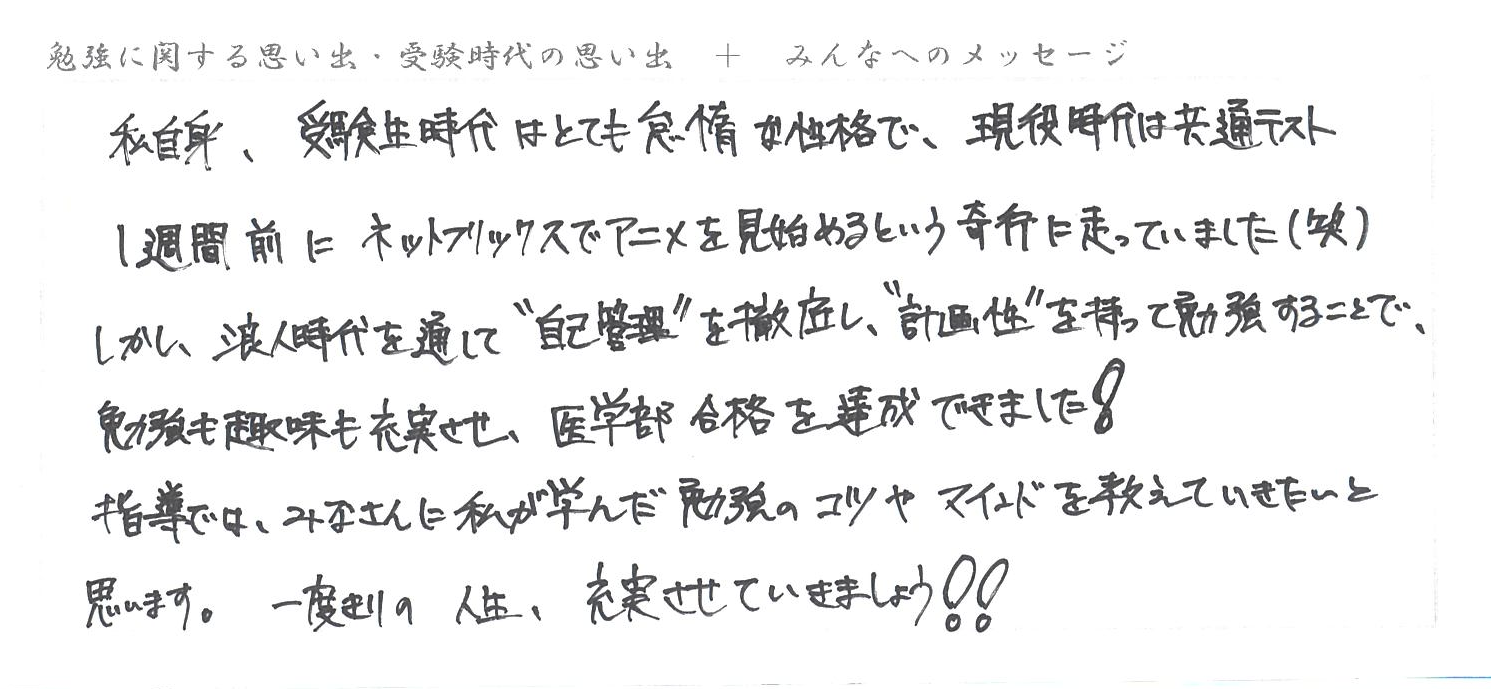 勉強に関する思い出・受験時代の思い出 + みんなへのメッセージ
私自身、受験生時代はとても怠惰な性格で、現役時代は共通テスト
1週間前にネットフリックスでアニメを見始めるという奇行に走っていました(笑)
しかし、浪人時代を通して“自己管理”を徹底し、“計画性”を持って勉強することで、
勉強も趣味も充実させ、医学部合格を達成できました!
指導では、みなさんに私が学んだ勉強のコツやマインドを教えていきたいと
思います。一度きりの人生、充実させていきましょう!!